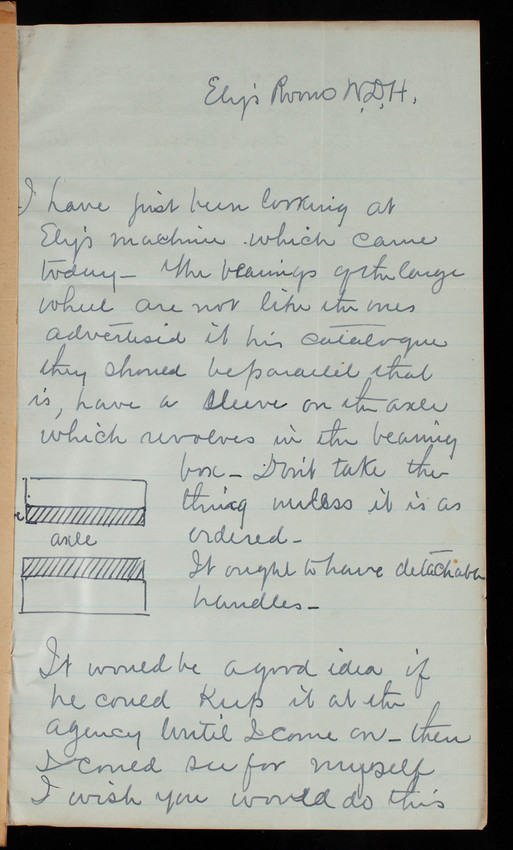 Ely's Rooms W.D.H.
I have just been looking at
Ely's machine which came
today - The bearings of the large
wheel are not like the ones
advertised it his catalogue
they should be parallel that
is, have a sleeve on the axle
which revolves in the bearing
box - Don't take the
thing unless it is as
ordered -
axle
It ought to have detachable
handles -
It would be a good idea if
he could keep it at the
agency until I come on - then
I could see for myself
I wish you would do this